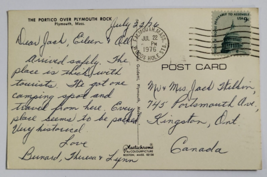 THE PORTICO OVER PLYMOUTH ROCK
Plymouth, Mass.
July 23/76
Dear Jack, Eileen & All,
Arrived safely. The
place is thick with
tourists. We got one
camping spot and
travel from here. Every
place seems to be packed
Very historical
Love
Bernard, Theresa & Lynn
PM
1976
POST CARD
Mr & Mrs Jack Hallam,
745 Portsmouth Ave,
Kingston, Ont
Canada